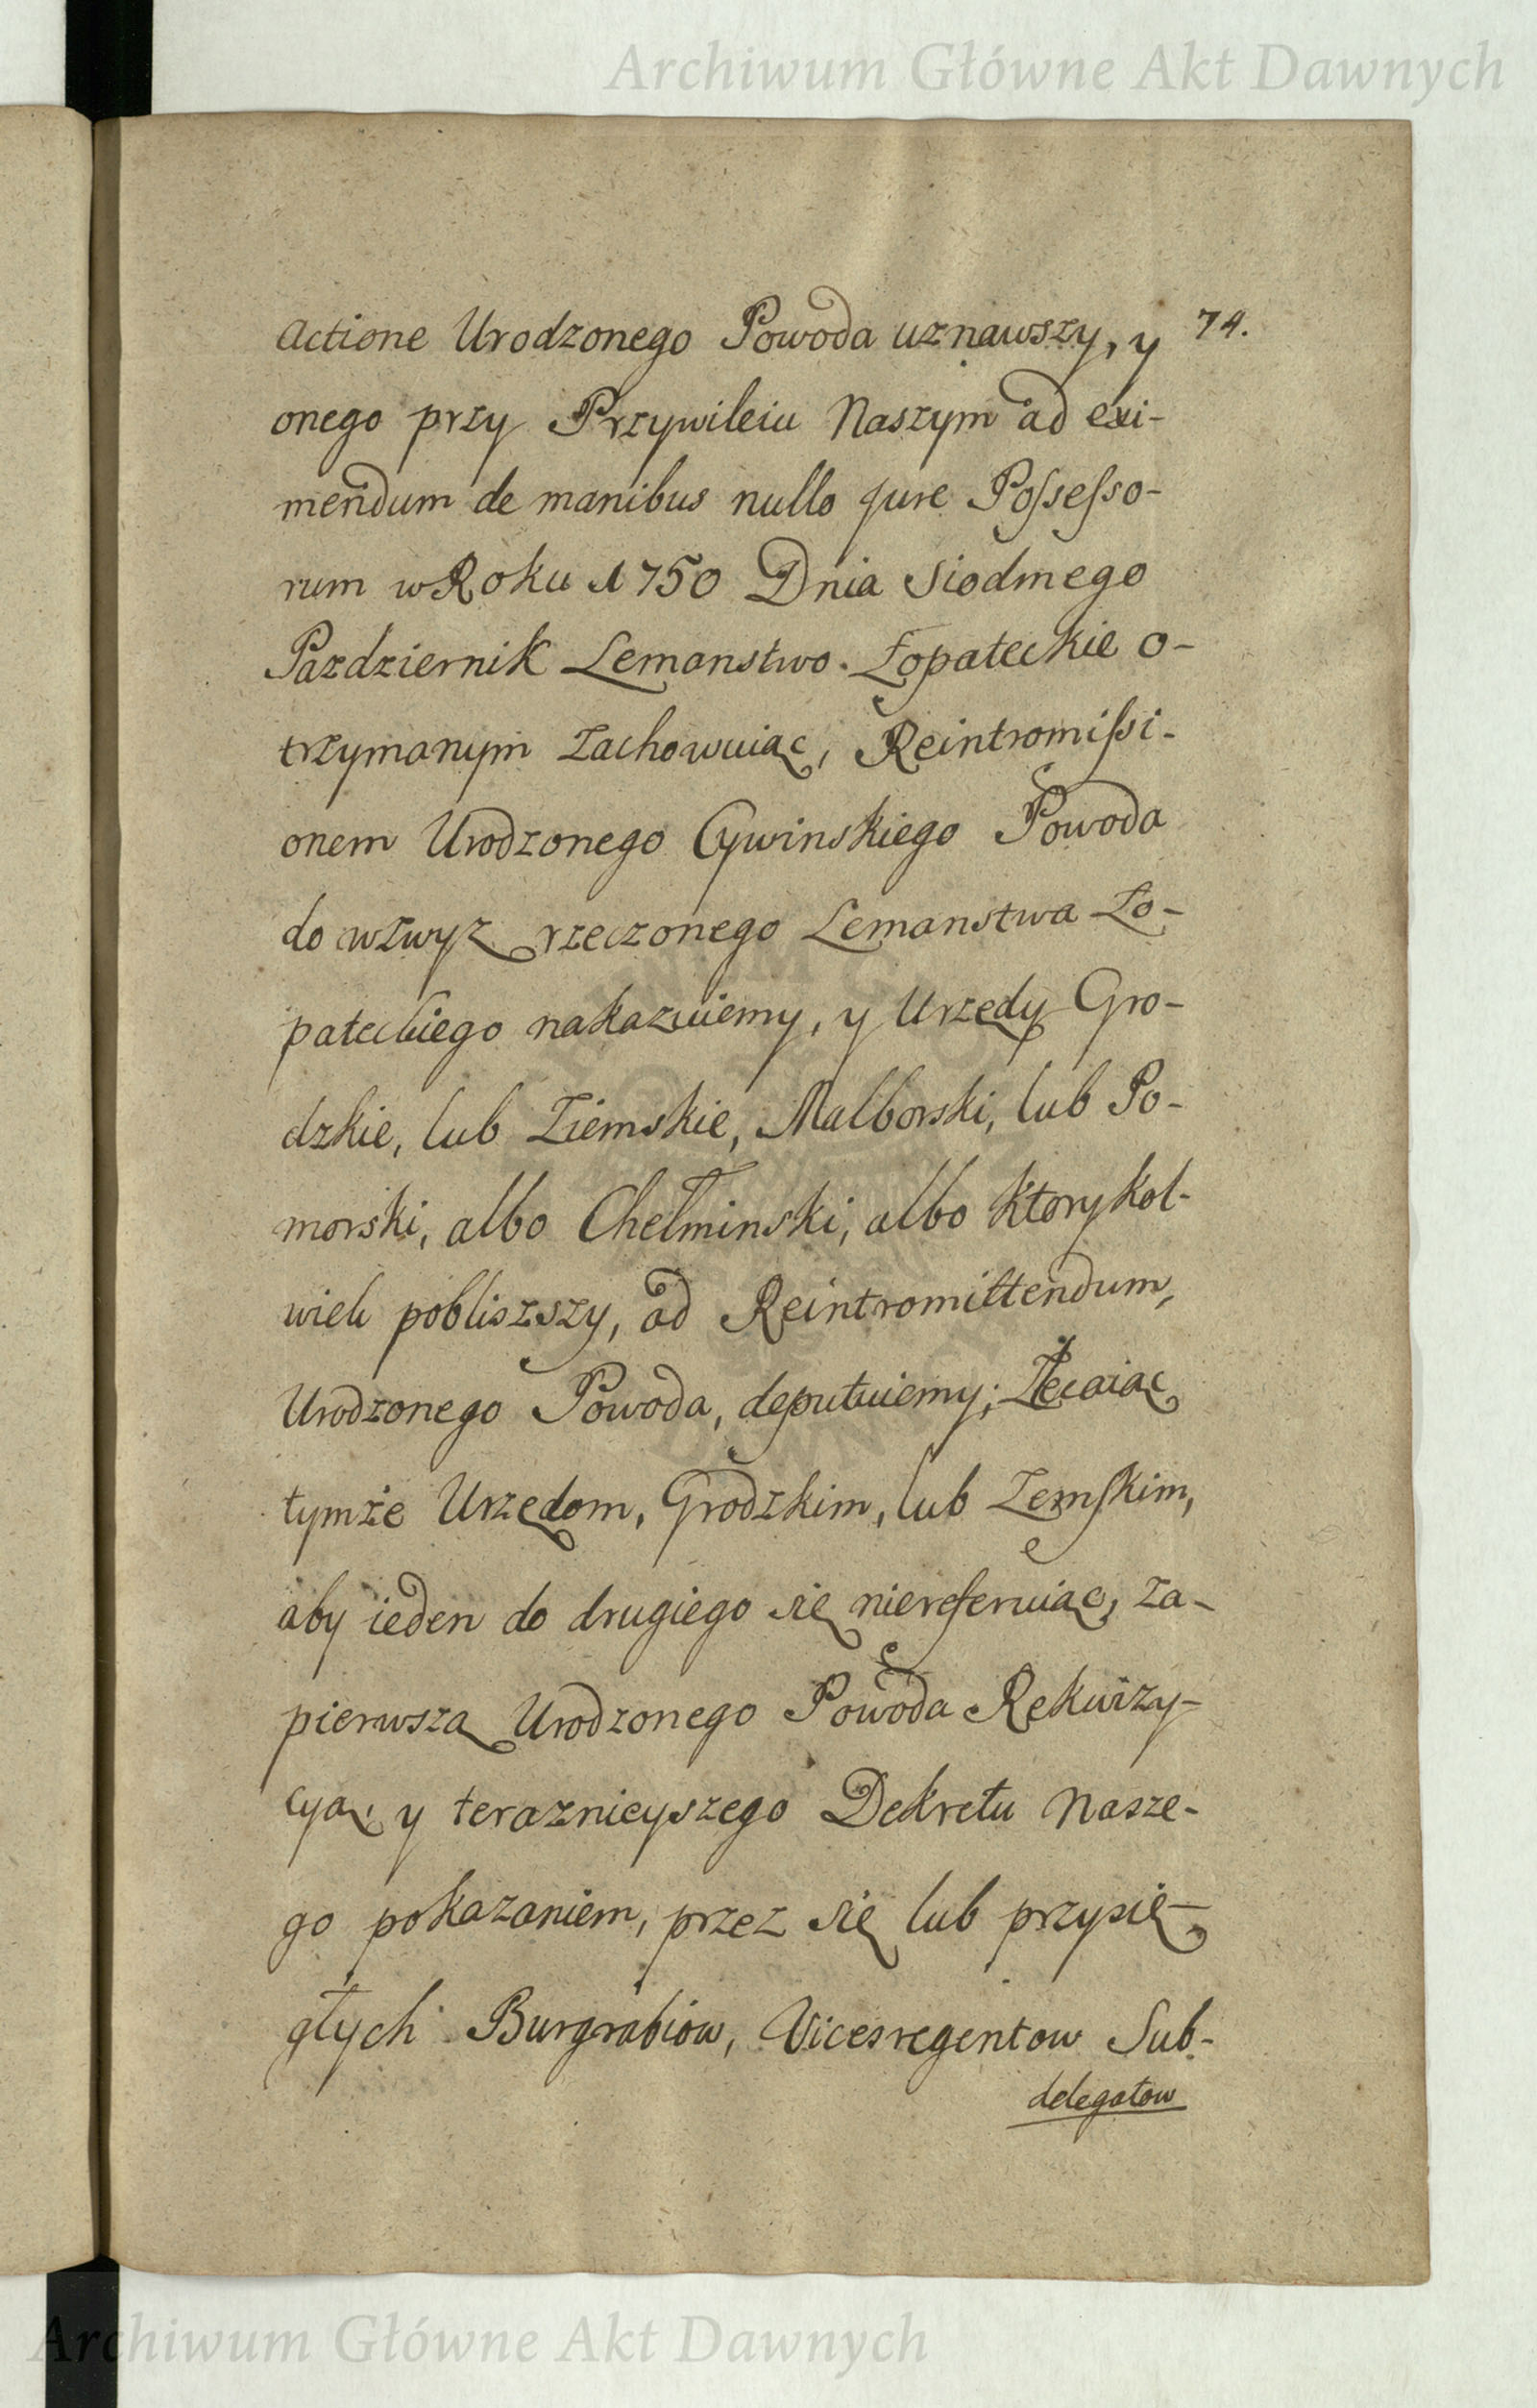 Archiwum Główne Akt Dawnych
Actione Urodzonego Powoda uznawszy, y 74.
onego przy Przywileiu Naszym ad exi-
mendum de manibus nullo jure Possesso-
rum w Roku 1750 Dnia Siodmego
Pazdziernik Lemanstwo. Łopateckie o-
trzymanym zachowuiąc, Reintromissi-
onem Urodzonego Cywinskiego Powoda
do wzwyz rzeczonego Lemanstwa Ło-
pateckiego nakazuiemy, y Urzędy Gro-
dzkie, lub Ziemskie, Malborski, lub Po-
morski, albo Chełminski, albo ktorykol-
wiek pobliszszy, ad Reintromittendum,
Urodzonego Powoda, deputuiemy; Zlecaiąc
tymże Urzędom, Grodzkim, lub Zemskim,
aby ieden do drugiego się niereferuiąc, za-
pierwszą Urodzonego Powoda Rekwizy-
cyą, y teraznieyszego Dekretu Nasze-
go pokazaniem, przez się lub przysię-
głych Burgrabiow, Vicesregentow Sub-
delegatow
Archiwum Główne Akt Dawnych